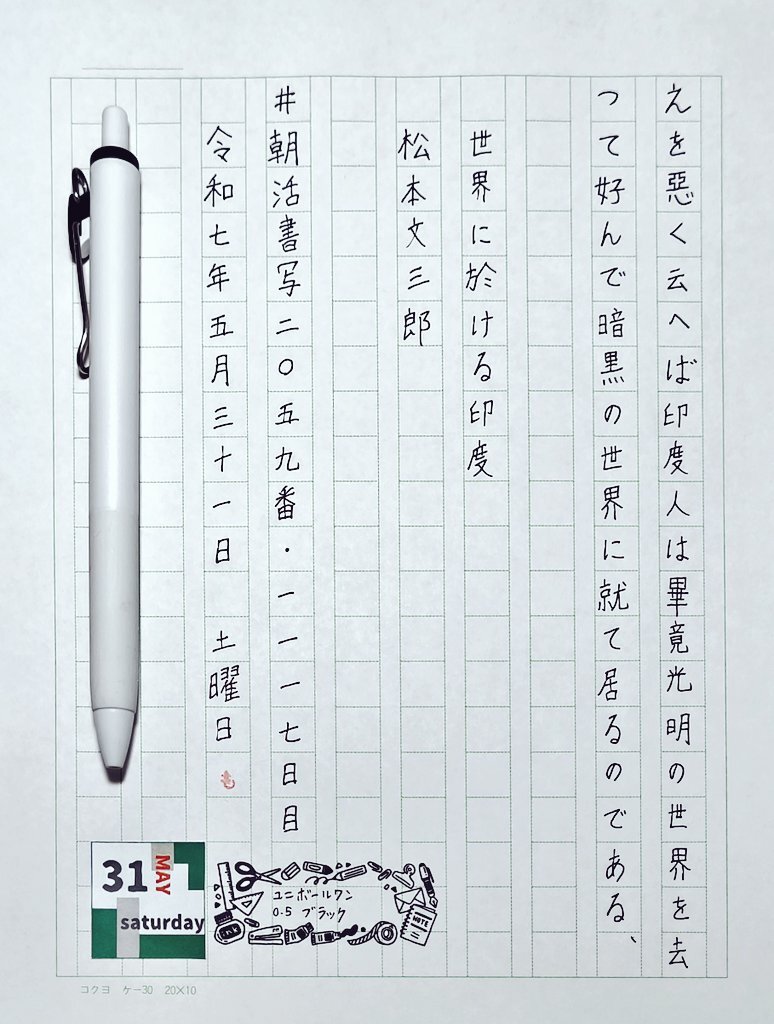 え を 惡く云へば印度人は畢竟光明の世界を去
つて好んで暗黒の世界に就て居るのである、
世界に於ける印度
松本文三郎
#朝活書写二〇五九番・一一一七日目
令和七年五月三十一日 土曜日
31
MAY
saturday
ユニボールワン
0.5 ブラック
NOTE
コクヨ ケー30 20×10